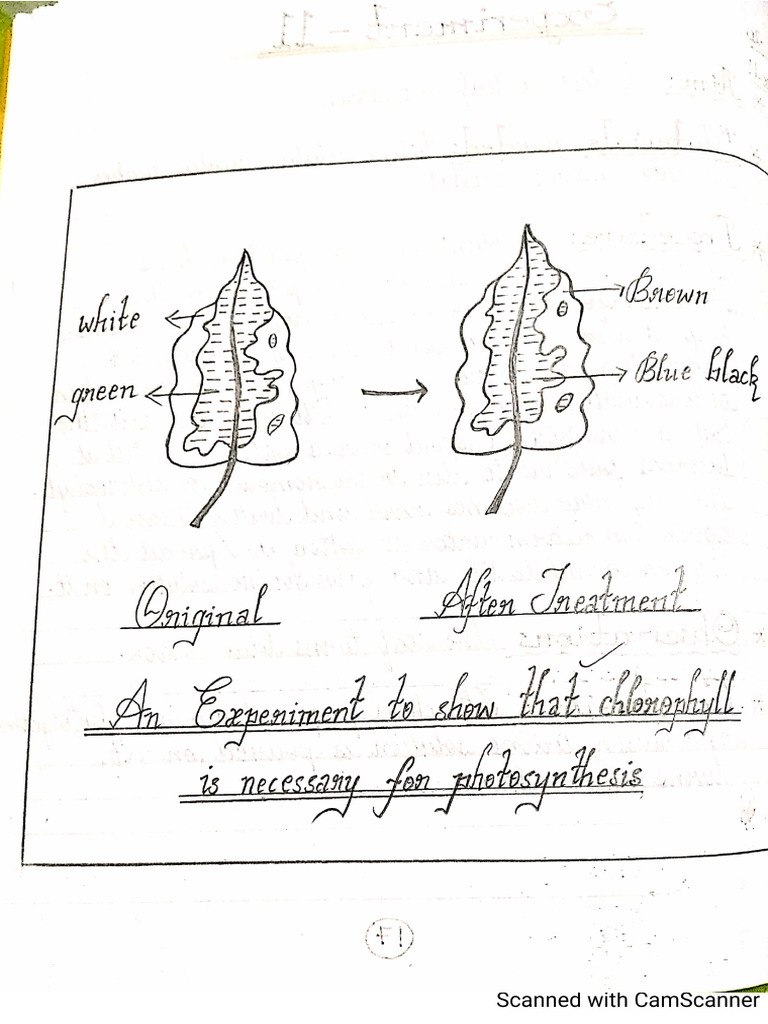 white
green
Brown
Blue black
Original
After Treatment
An Experiment to show that chlorophyll
is necessary for photosynthesis
17
Scanned with CamScanner